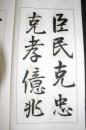 臣民克忠
克孝億兆